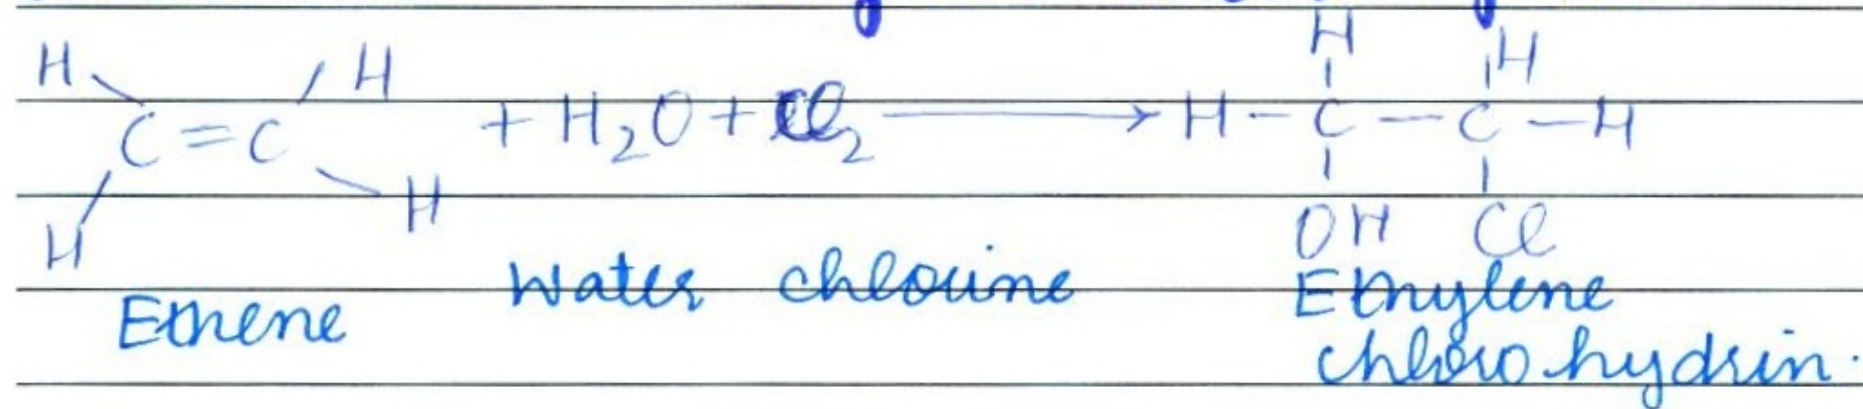 H H H H
C = C + H₂O + Cl₂ ⟶ H - C - C - H
H H OH Cl
Ethene Water chlorine Ethylene
chlorohydrin.